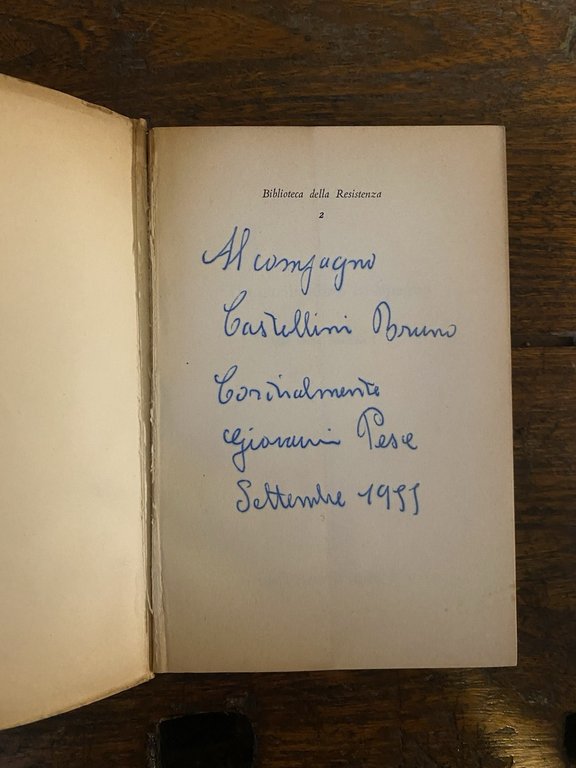 Biblioteca della Resistenza
2
Al compagno
Castellini Bruno
Cordialmente
Giovanni Pesce
Settembre 1955